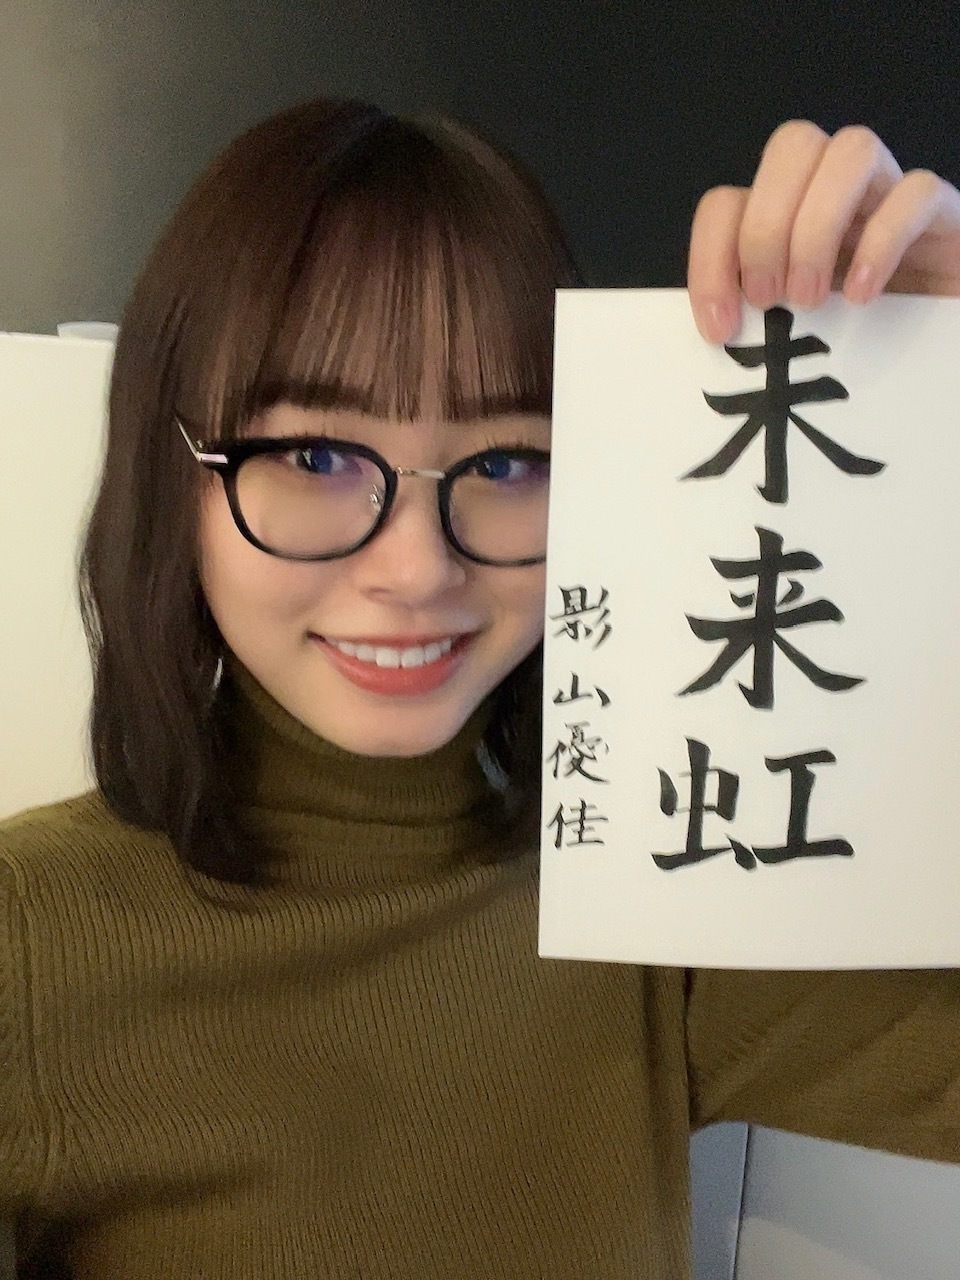 未来虹
影山優佳